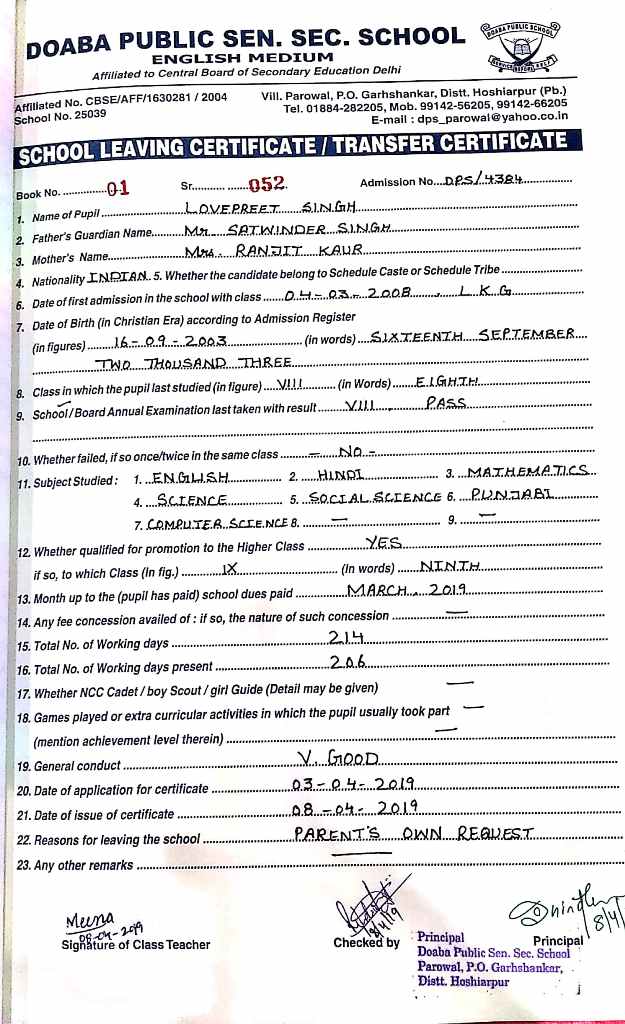 DOABA PUBLIC SEN. SEC. SCHOOL
ENGLISH MEDIUM
Affiliated to Central Board of Secondary Education Delhi
DOABA PUBLIC SCHOOL
Affiliated No. CBSE/AFF/1630281 / 2004
School No. 25039
Vill. Parowal, P.O. Garhshankar, Distt. Hoshiarpur (Pb.)
Tel. 01884-282205, Mob. 99142-56205, 99142-66205
E-mail : dps_parowal@yahoo.co.in
SCHOOL LEAVING CERTIFICATE / TRANSFER CERTIFICATE
Book No. 01 Sr. 052 Admission No. DPS/4384
1. Name of Pupil LOVEPREET SINGH
2. Father's Guardian Name Mr. SATWINDER SINGH
3. Mother's Name Mrs. RANJIT KAUR
4. Nationality INDIAN 5. Whether the candidate belong to Schedule Caste or Schedule Tribe
6. Date of first admission in the school with class 04-03-2008, LKG
7. Date of Birth (in Christian Era) according to Admission Register
(in figures) 16-09-2003 (in words) SIXTEENTH SEPTEMBER
TWO THOUSAND THREE
8. Class in which the pupil last studied (in figure) VIII (in Words) EIGHTH
9. School / Board Annual Examination last taken with result VIII PASS
10. Whether failed, if so once/twice in the same class - NO -
11. Subject Studied : 1. ENGLISH 2. HINDI 3. MATHEMATICS
4. SCIENCE 5. SOCIAL SCIENCE 6. PUNJABI
7. COMPUTER SCIENCE 8. — 9. —
12. Whether qualified for promotion to the Higher Class YES
if so, to which Class (In fig.) IX (In words) NINTH
13. Month up to the (pupil has paid) school dues paid MARCH, 2019
14. Any fee concession availed of : if so, the nature of such concession —
15. Total No. of Working days 214
16. Total No. of Working days present 206
17. Whether NCC Cadet / boy Scout / girl Guide (Detail may be given) —
18. Games played or extra curricular activities in which the pupil usually took part —
(mention achievement level therein) —
19. General conduct V. GOOD
20. Date of application for certificate 03-04-2019
21. Date of issue of certificate 08-04-2019
22. Reasons for leaving the school PARENT'S OWN REQUEST
23. Any other remarks —
Meena
08-04-2019
8/4/19
8/4/
Signature of Class Teacher
Checked by
Principal
Principal
Doaba Public Sen. Sec. School
Parowal, P.O. Garhshankar,
Distt. Hoshiarpur